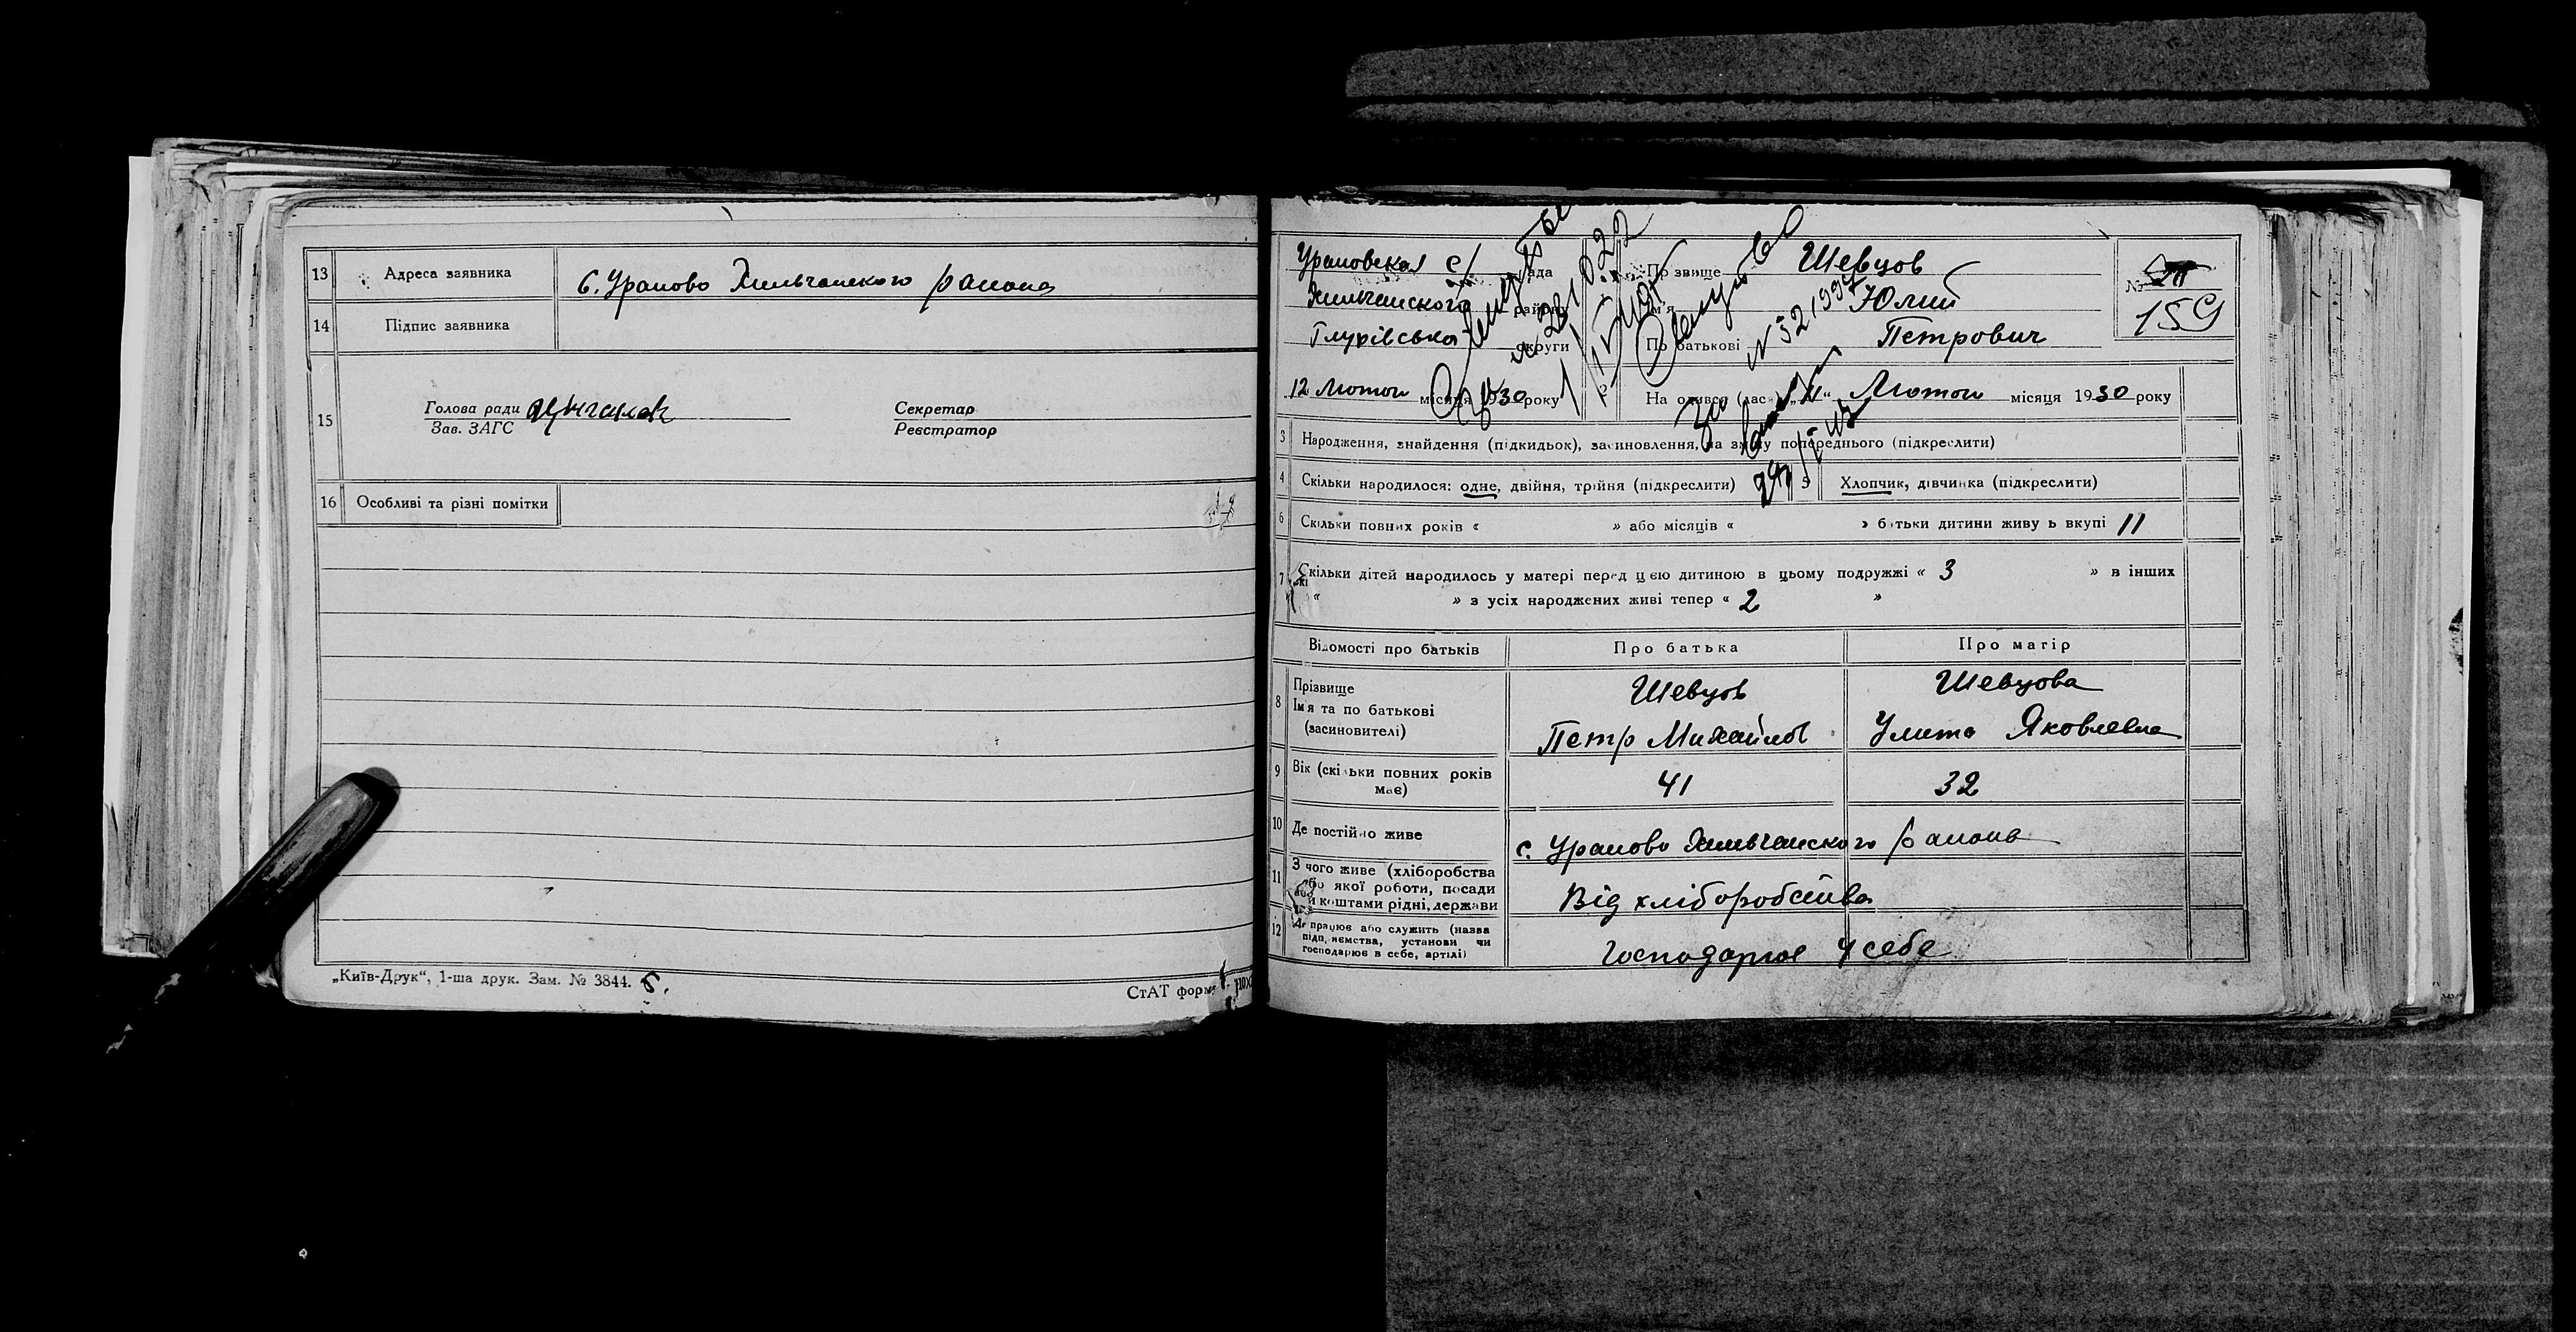 13 Адреса заявника с. Урапово Хильчанского района
14 Підпис заявника
15 Голова ради
Зав. ЗАГС
Секретар
Реєстратор
16 Особливі та різні помітки
„Київ-Друк“, 1-ша друк. Зам. № 3844.
СтАТ форма
Ураповская с/ рада
Хильчанского район
Глухівська округи
12 Лютого місяця 1930 року
Прізвище Шевцов
Ім'я Юлий
По батькові Петрович
№
159
На одився лютого місяця 1930 року
3 Народження, знайдення (підкидьок), засиновлення, на зміну попереднього (підкреслити)
4 Скільки народилося: одне, двійня, трійня (підкреслити)
5 Хлопчик, дівчинка (підкреслити)
6 Скільки повних років « » або місяців « » батьки дитини живуть вкупі 11
7 Скільки дітей народилось у матері перед цією дитиною в цьому подружжі « 3 » в інших
« » з усіх народжених живі тепер « 2 »
Відомості про батьків Про батька Про матір
8 Прізвище
Ім'я та по батькові
(засиновителі)
Шевцов
Петр Михайлов
Шевцова
Улита Яковлевна
9 Вік (скільки повних років має) 41 32
10 Де постійно живе с. Урапово Хильчанского района
11 З чого живе (хліборобства або якої роботи, посади чи коштами рідні, держави
Від хліборобства
12 Де працює або служить (назва підприємства, установи чи господарює в себе, артілі)
Господарює у себе